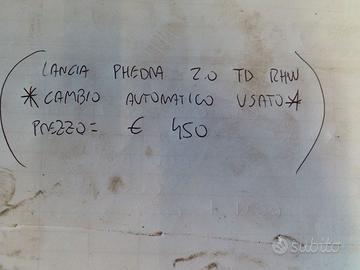 LANCIA PHEDRA 2.0 TD RHW
*CAMBIO AUTOMATICO USATO*
PREZZO= € 450
subito